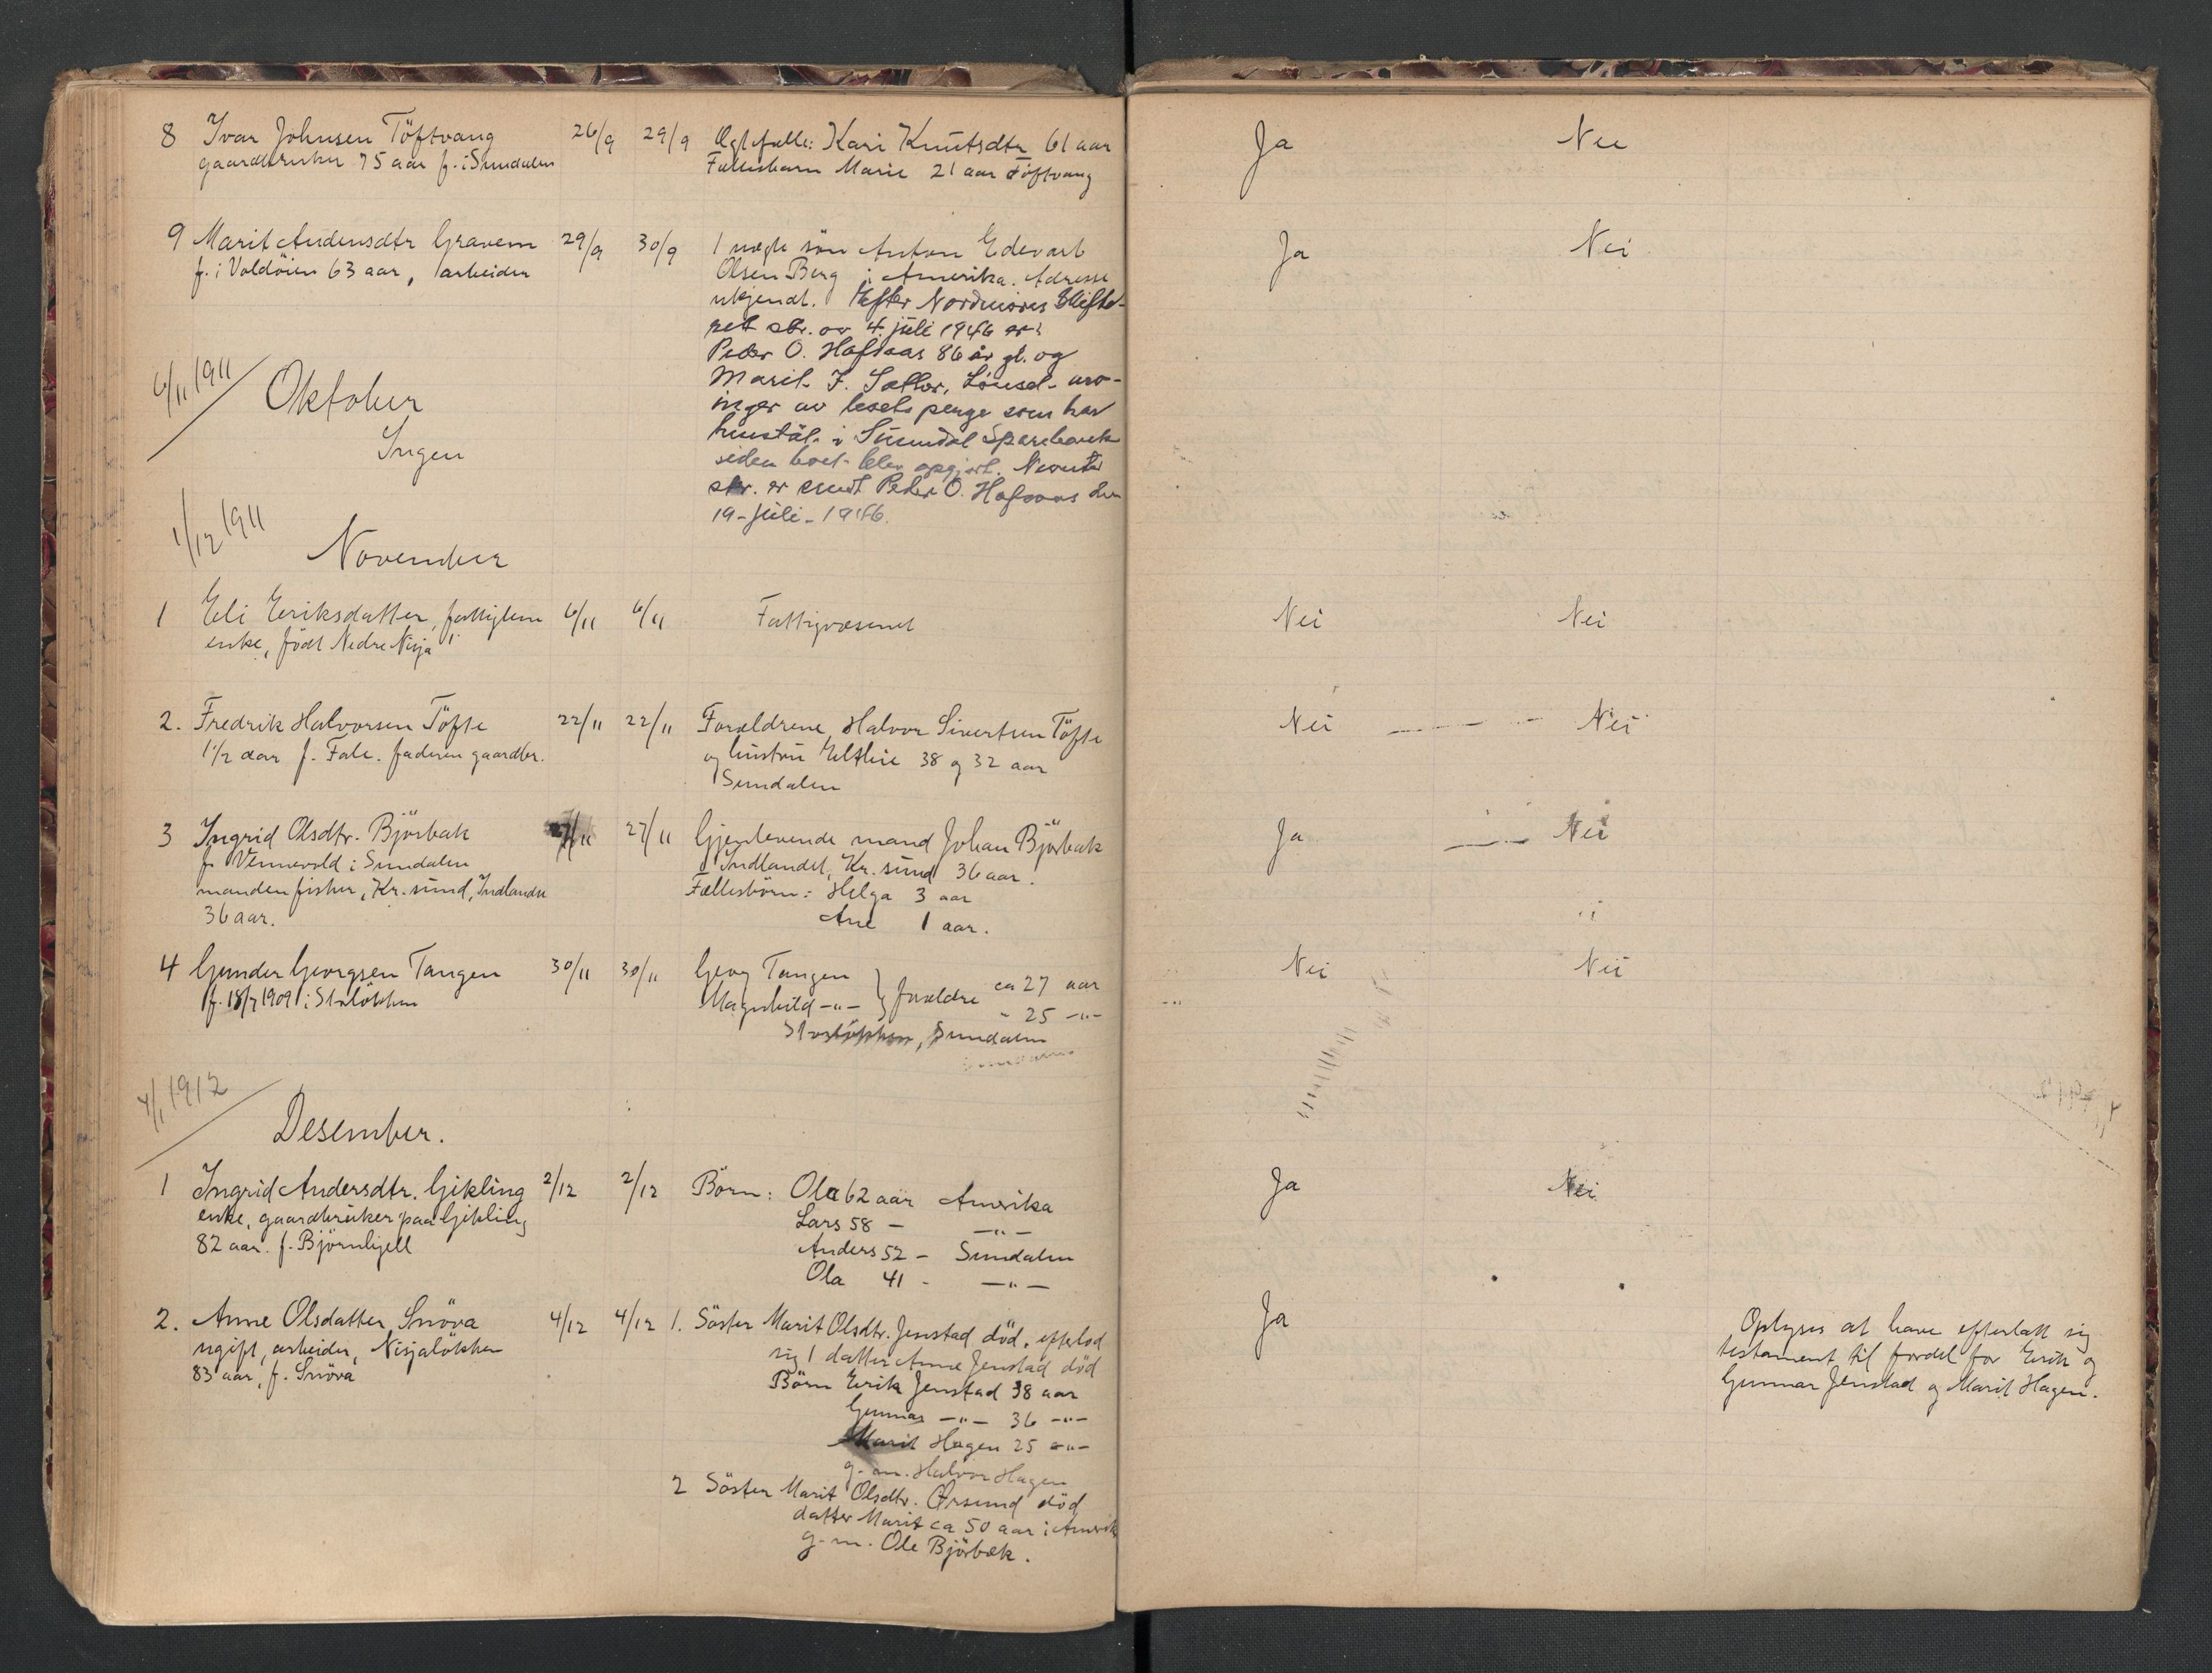 8 Ivar Johnsen Töftvang 26/9 29/9 Ægtefælle: Kari Knutsdtr 61 aar Ja Nei
gaardbruker 75 aar f. i Sundalen Fællesbarn Marie 21 aar Töftvang
9 Marit Andersdtr Gravem 29/9 30/9 1 uægte sön Anton Edevart Ja Nei
f. i Voldöien 63 aar, arbeider Olsen Berg i Amerika. Adresse
ukjendt. Efter Nordmöres Skifte-
ret skr. av 4. juli 1946 er
Peder O. Hafsaas 86 år gl. og
Marit J. Sæther, Lönset arv-
inger av boets penge som har
henståt i Sunndal Sparebank
siden boet blev opgjort. Nevnte
skr. er sendt Peder O. Hafsaas den
19-juli-1946.
6/11 1911
Oktober
Ingen
1/12 1911
November
1 Eli Eriksdatter, fattiglem 6/11 6/11 Fattigvæsenet Nei Nei
enke, födt Nedre Nisja
2. Fredrik Halvorsen Töfte 22/11 22/11 Forældrene, Halvor Sivertsen Töfte Nei — — Nei
1 1/2 aar f. Fale. faderen gaardbr. og hustru 38 og 32 aar
Sundalen
3 Ingrid Olsdtr. Björbak 27/11 27/11 Gjenlevende mand Johan Björbak Ja — Nei
f. Vennevold i Sundalen Indlandet, Kr.sund 36 aar.
manden fisker, Kr.sund, Indlandet Fællesbörn: Helga 3 aar
36 aar. Ane 1 aar.
4 Gunder Georgsen Tangen 30/11 30/11 Georg Tangen ca 27 aar Nei Nei
f. 18/7 1909 i Storlökken Magnhild -"- } forældre " 25 -"-
Storlökken, Sundalen
4/1 1912
Desember.
1 Ingrid Andersdtr. Gjikling 2/12 2/12 Börn: Ola 62 aar Amerika Ja Nei
enke, gaardbruker paa Gjikling Lars 58 - -"-
82 aar. f. Björnhjell Anders 52 - Sundalen
Ola 41 - -"-
2. Anne Olsdatter Snöva 4/12 4/12 1. Söster Marit Olsdtr. Jenstad död, efterlod Ja Oplyses at have efterlatt sig
ugift, arbeider, Nisjalökken sig 1 datter Anne Jenstad död testament til fordel for Erik og
83 aar, f. Snöva Börn Erik Jenstad 38 aar Gunnar Jenstad og Marit Hagen.
Gunnar -"- 36 -"-
Marit Hagen 25 -"-
g. m. Halvor Hagen
2 Söster Marit Olsdtr. Ørsund död
datter Marit ca 50 aar i Amerika
g. m. Ole Björbæk.